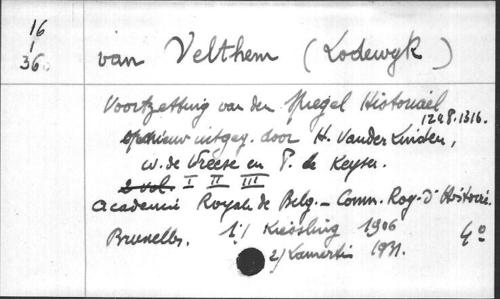 16
1
36
van Velthem (Lodewyk)
Voortzetting van den Spiegel Historiael
1248-1316.
opnieuw uitgeg. door H. Vander Linden,
W. de Vreese en P. de Keyser.
2 vol. I II III
Academie Royale de Belg. - Comm. Roy. d'Histoire.
Bruxelles. 1/ Kiessling 1906 4°
2/ Lamertin 1931.